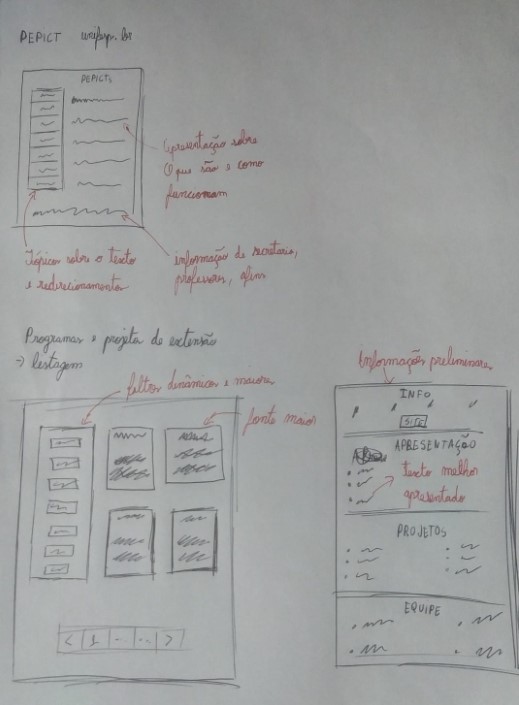 PEPICT unifesp.br
PEPICTs
Apresentação sobre
O que são e como
funcionam
Tópicos sobre o texto
e redirecionamentos
informação de secretaria,
professores, afins
Programas e projeto de extensão
→ listagem
filtros dinâmicos e maiores
fonte maior
< 1 - .. >
Informações preliminares
INFO
SITE
APRESENTAÇÃO
texto melhor
apresentado
PROJETOS
EQUIPE